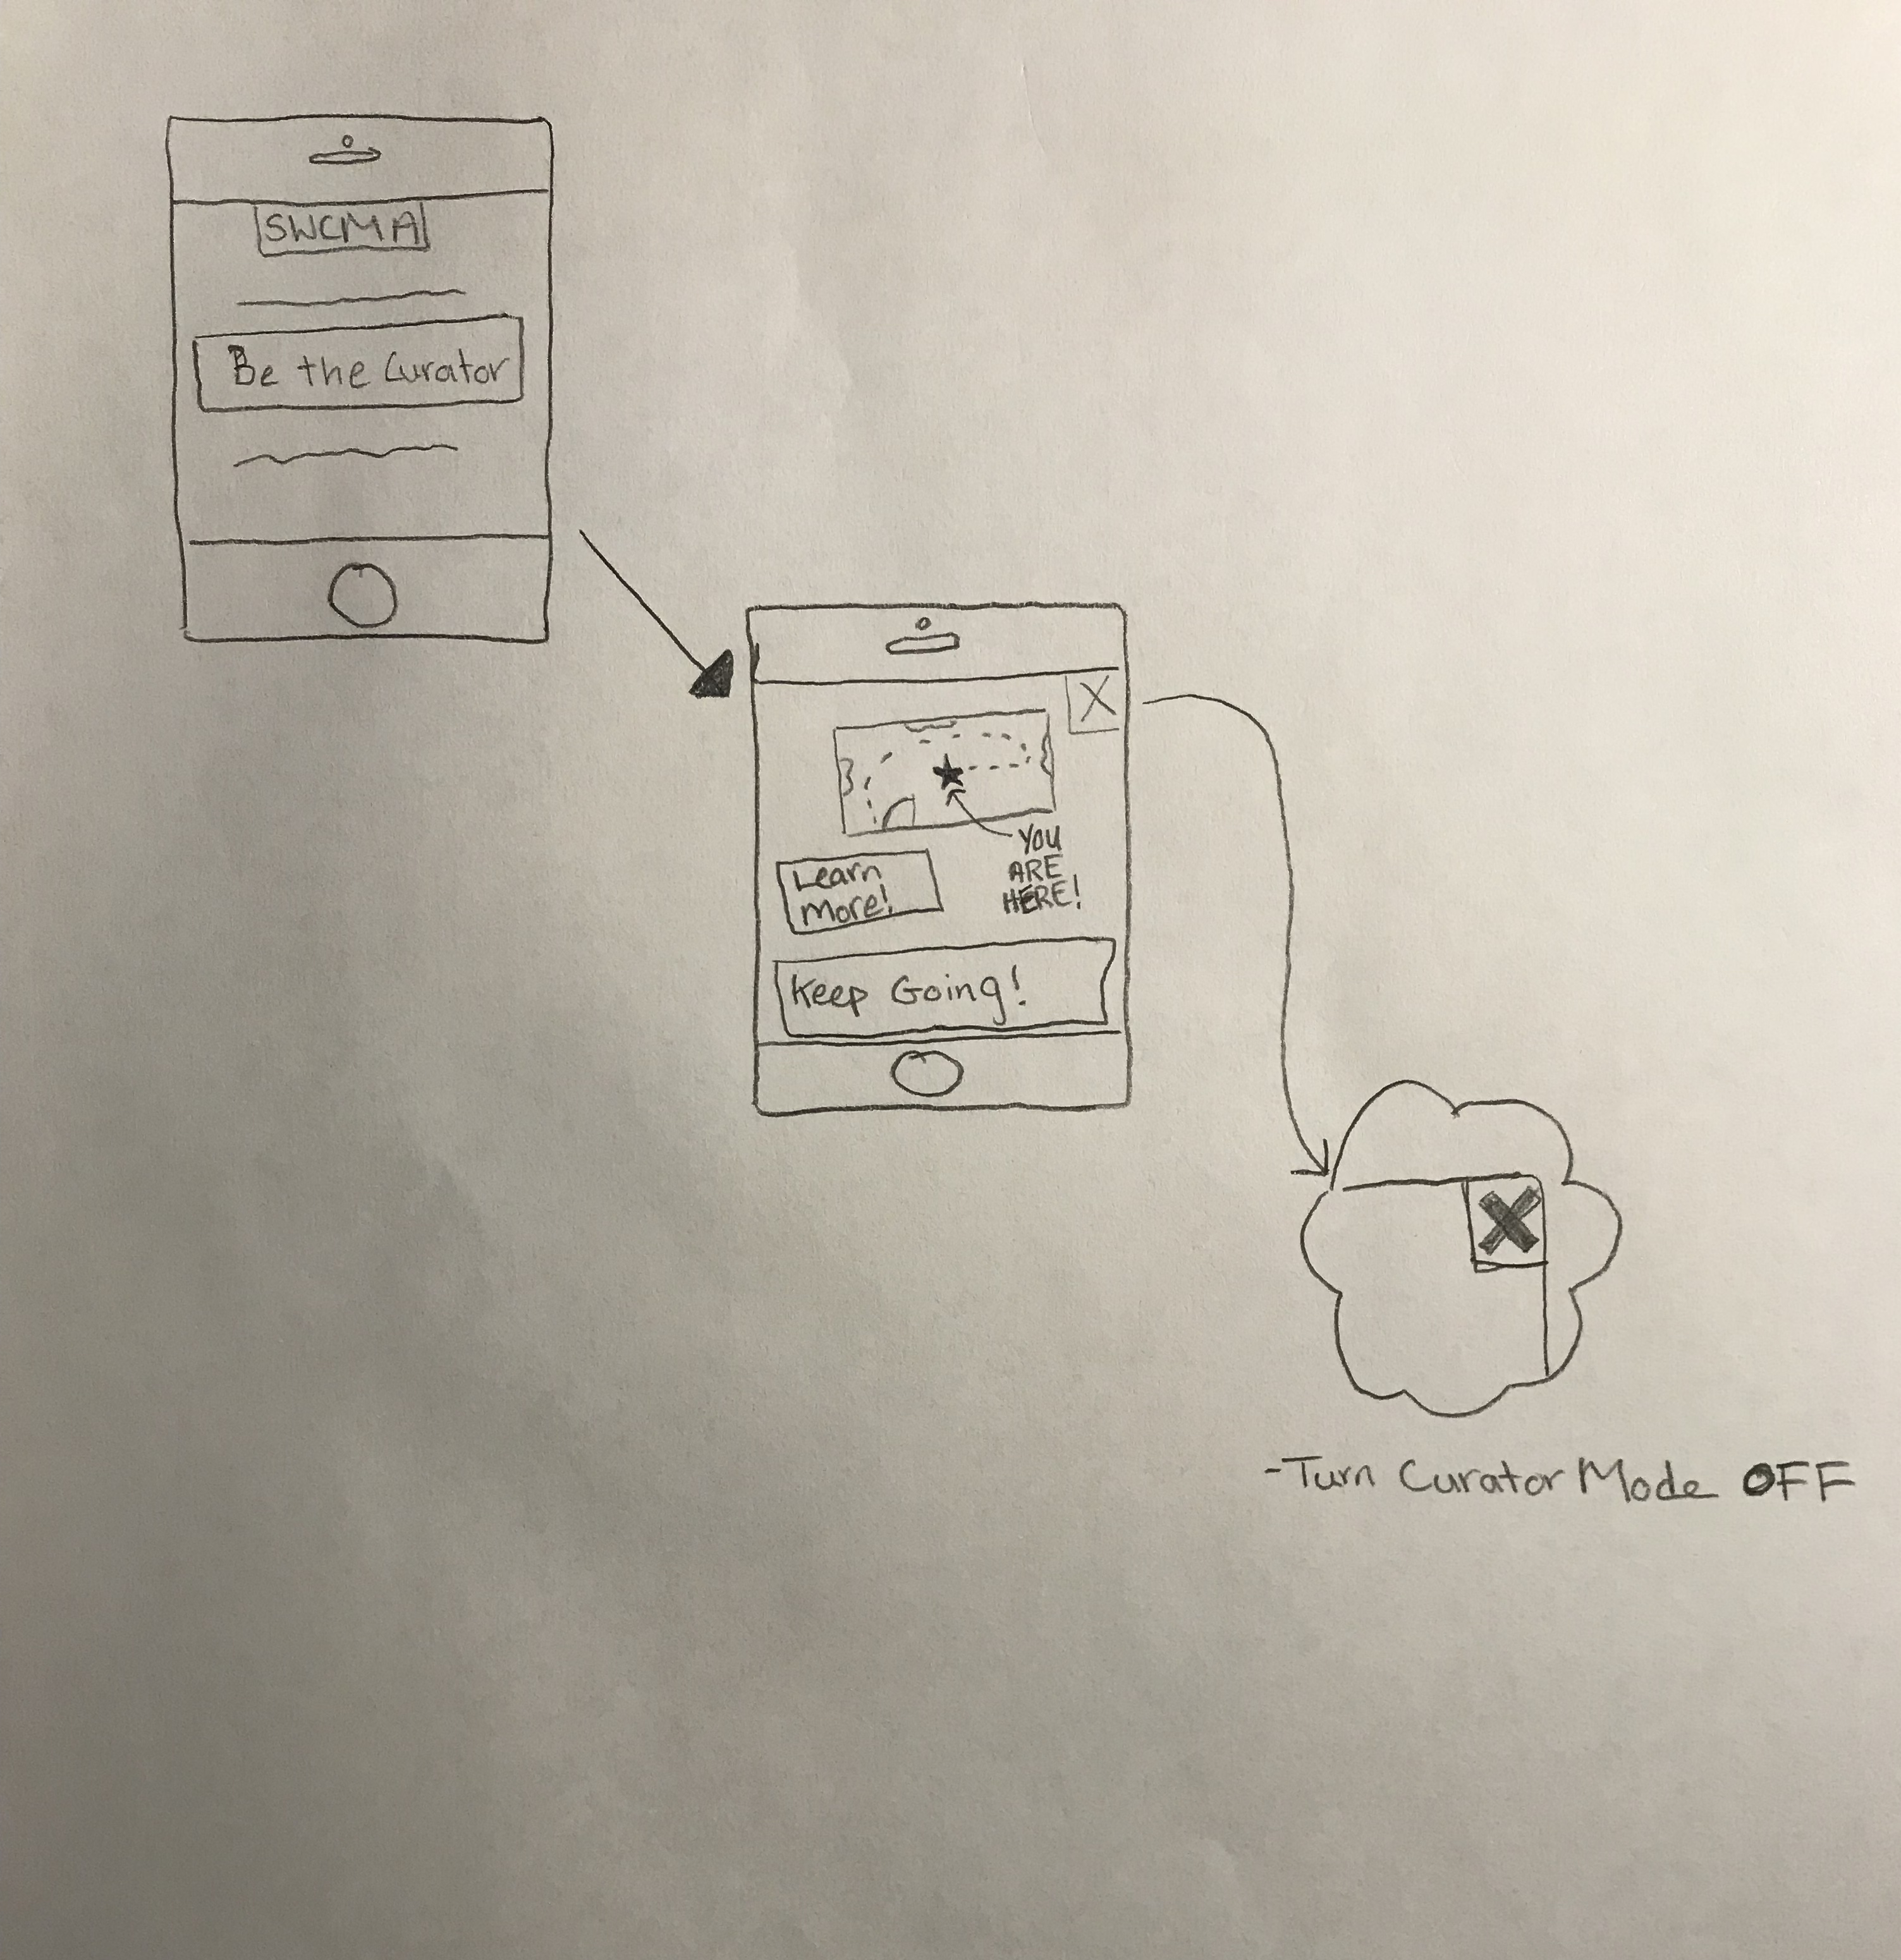 SWCMA
Be the Curator
X
YOU
ARE
HERE!
Learn
More!
Keep Going!
X
-Turn Curator Mode OFF